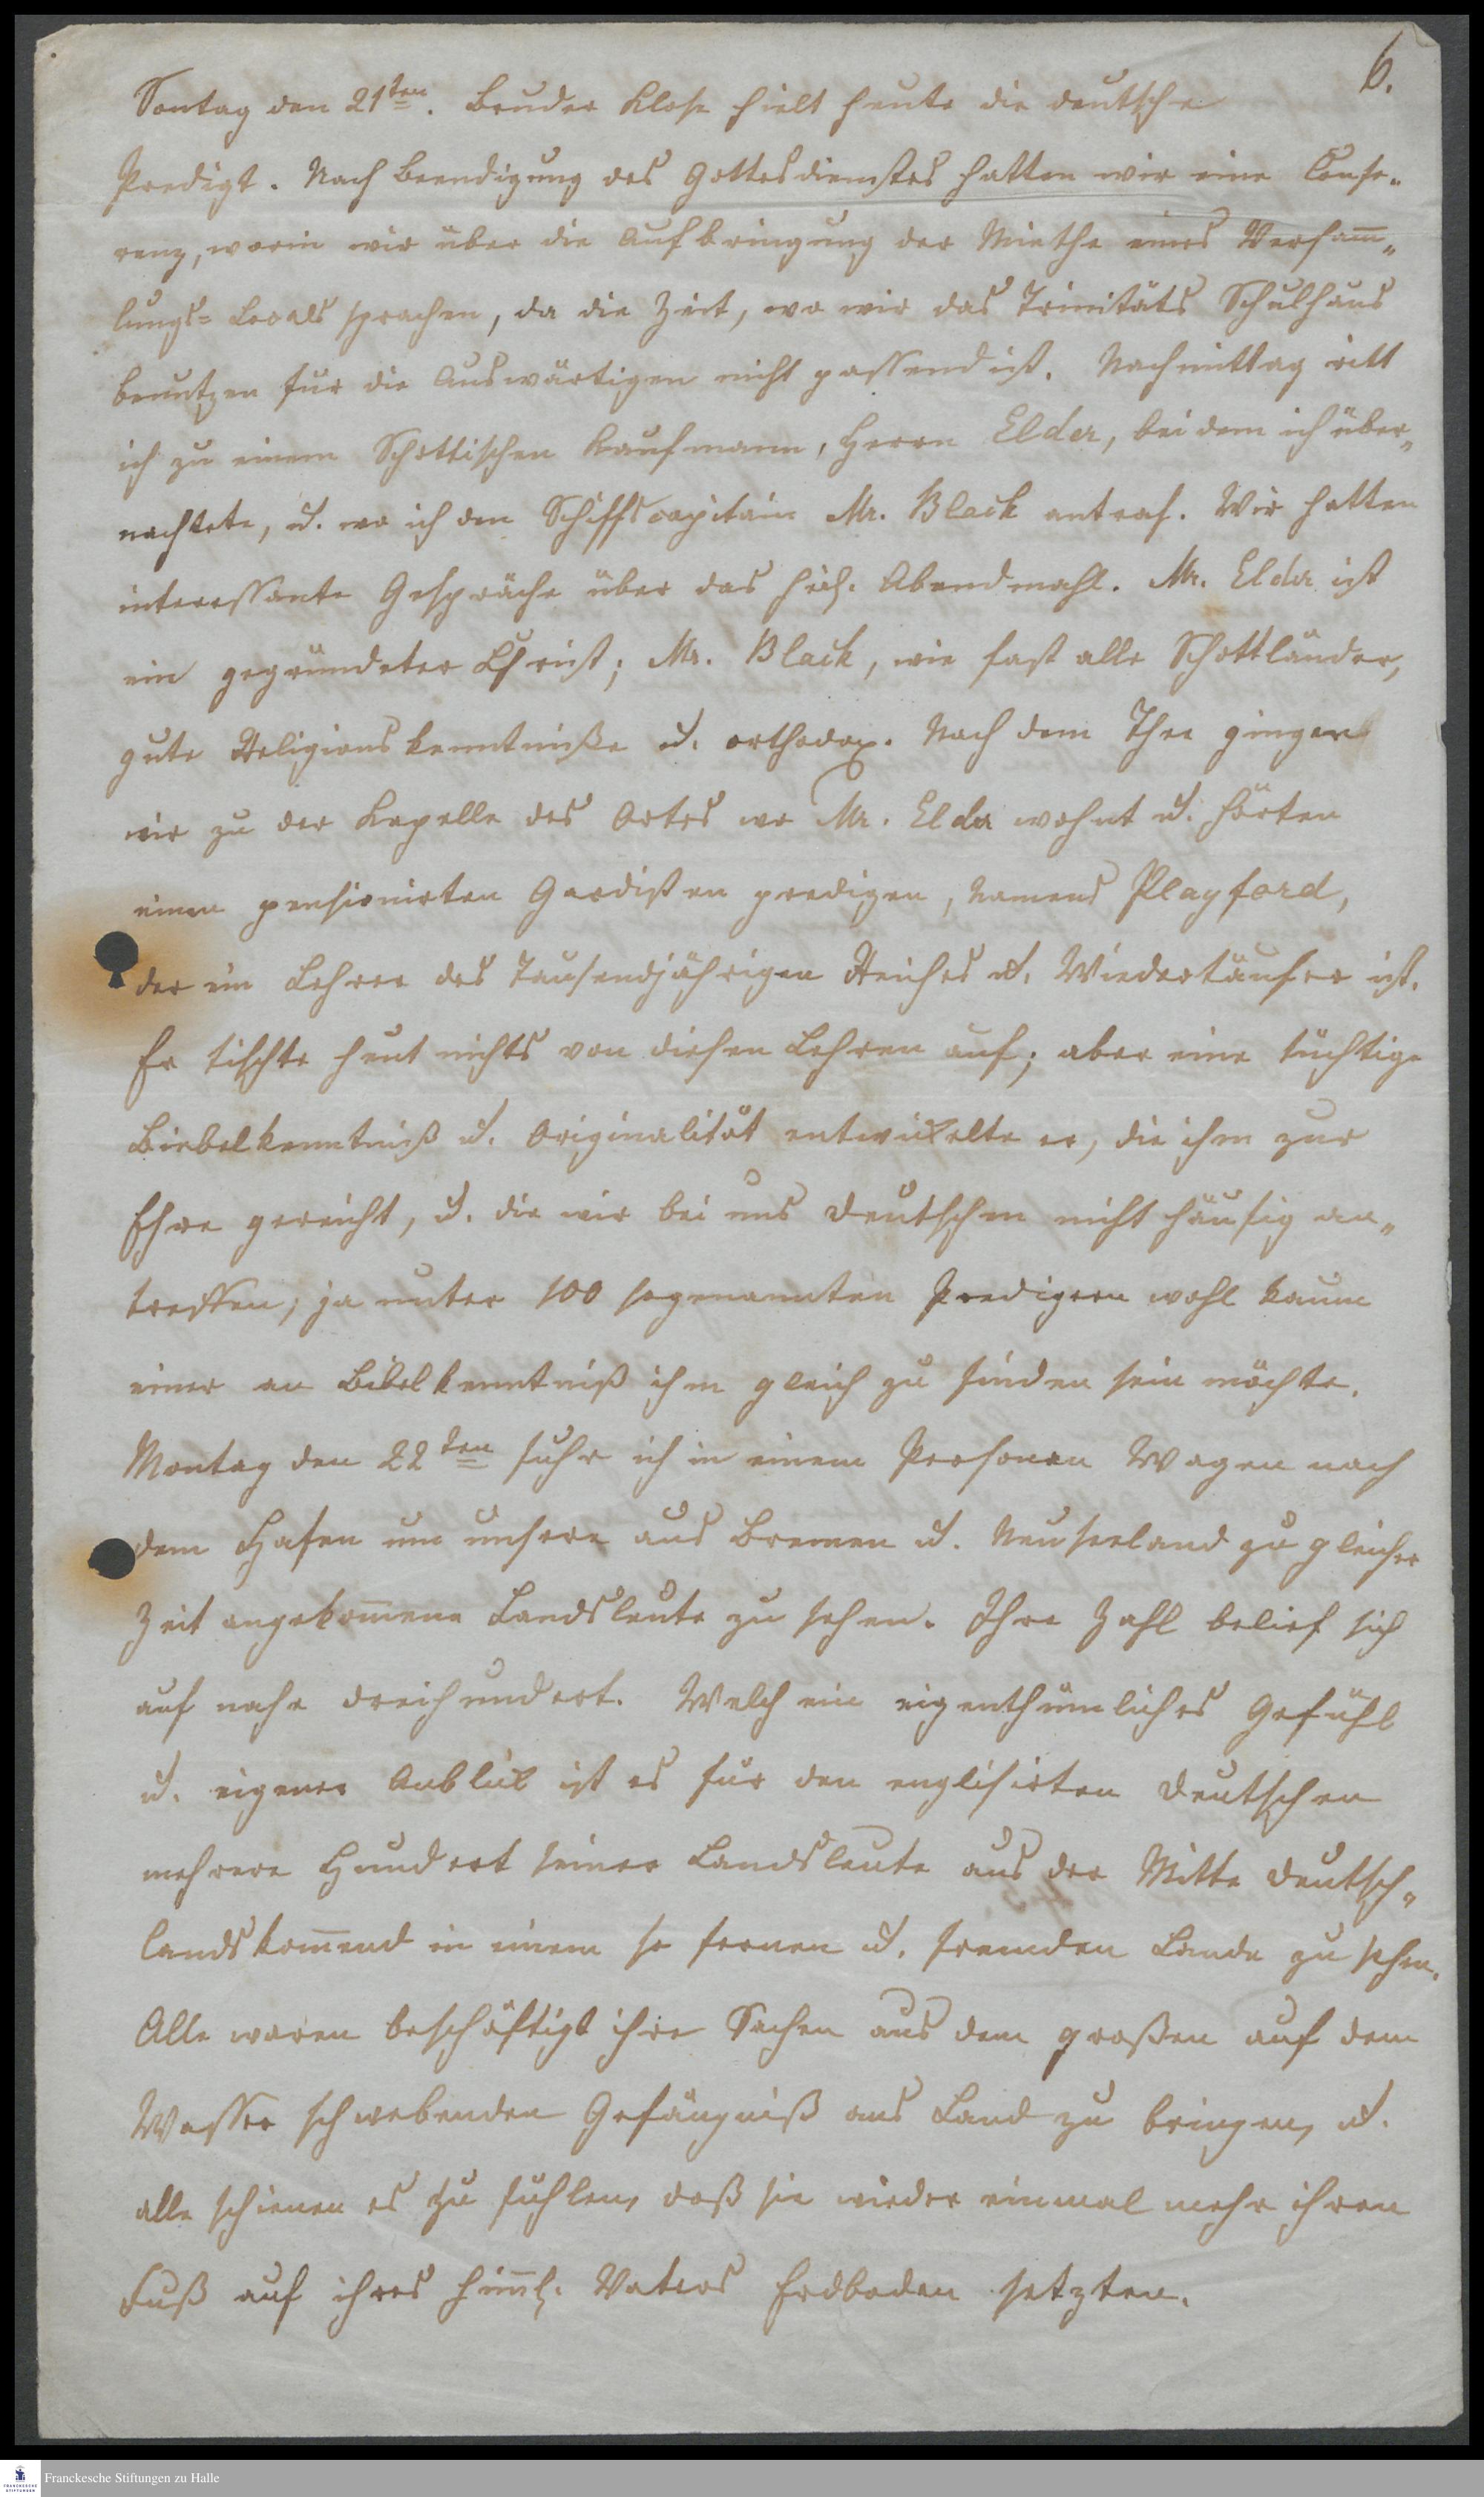 6.
Sontag den 21ten. Bruder Klose hielt heute die deutsche
Predigt. Nach Beendigung des Gottesdienstes hatten wir eine Confe-
renz, worin wir über die Aufbringung der Miethe eines Versam̅-
lungs-Locals sprachen, da die Zeit, wo wir das Trinitäts Schulhaus
benutzen für die Auswärtigen nicht passend ist. Nachmittag ritt
ich zu einem Schottischen Kaufmann, Herrn Elder, bei dem ich über-
nachtete, u. wo ich den Schiffscapitain Mr. Black antraf. Wir hatten
interessante Gespräche über das heil. Abendmahl. Mr. Elder ist
ein gegründeter Christ; Mr. Black, wie fast alle Schottländer,
gute Religionskenntniße u. orthodox. Nach dem Thee gingen
wir zu der Kapelle des Ortes wo Mr. Elder wohnt u. hörten
einen pensionirten Gardisten predigen, Namens Playford,
der ein Lehrer des Tausendjährigen Reiches u. Wiedertäufer ist.
Er tischte heut nichts von diesen Lehren auf; aber eine tüchtige
Biebelkenntniß u. Originalität entwickelte er, die ihm zur
Ehre gereicht, u. die wir bei uns Deutschen nicht häufig an-
treffen; ja unter 100 sogenannten Predigern wohl kaum
einer an Bibelkenntniß ihm gleich zu finden sein möchte.
Montag den 22ten fuhr ich in einem Personen Wagen nach
dem Hafen um unsere aus Bremen u. Neuseeland zu gleicher
Zeit angekom̅ene Landsleute zu sehen. Ihre Zahl belief sich
auf nahe dreihundert. Welch ein eigenthümliches Gefühl
u. eigener Anblick ist es für den englisirten Deutschen
mehrere Hundert seiner Landsleute aus der Mitte Deutsch-
lands kom̅end in einem so fernen u. fremden Lande zu sehen.
Alle waren beschäftigt ihre Sachen aus dem großen auf dem
Wasser schwebenden Gefängniß ans Land zu bringen, u.
alle schienen es zu fühlen, daß sie wieder einmal mehr ihren
Fuß auf ihres him̅l. Vaters Erdboden setzten.
Franckesche Stiftungen zu Halle
FRANCKESCHE
STIFTUNGEN